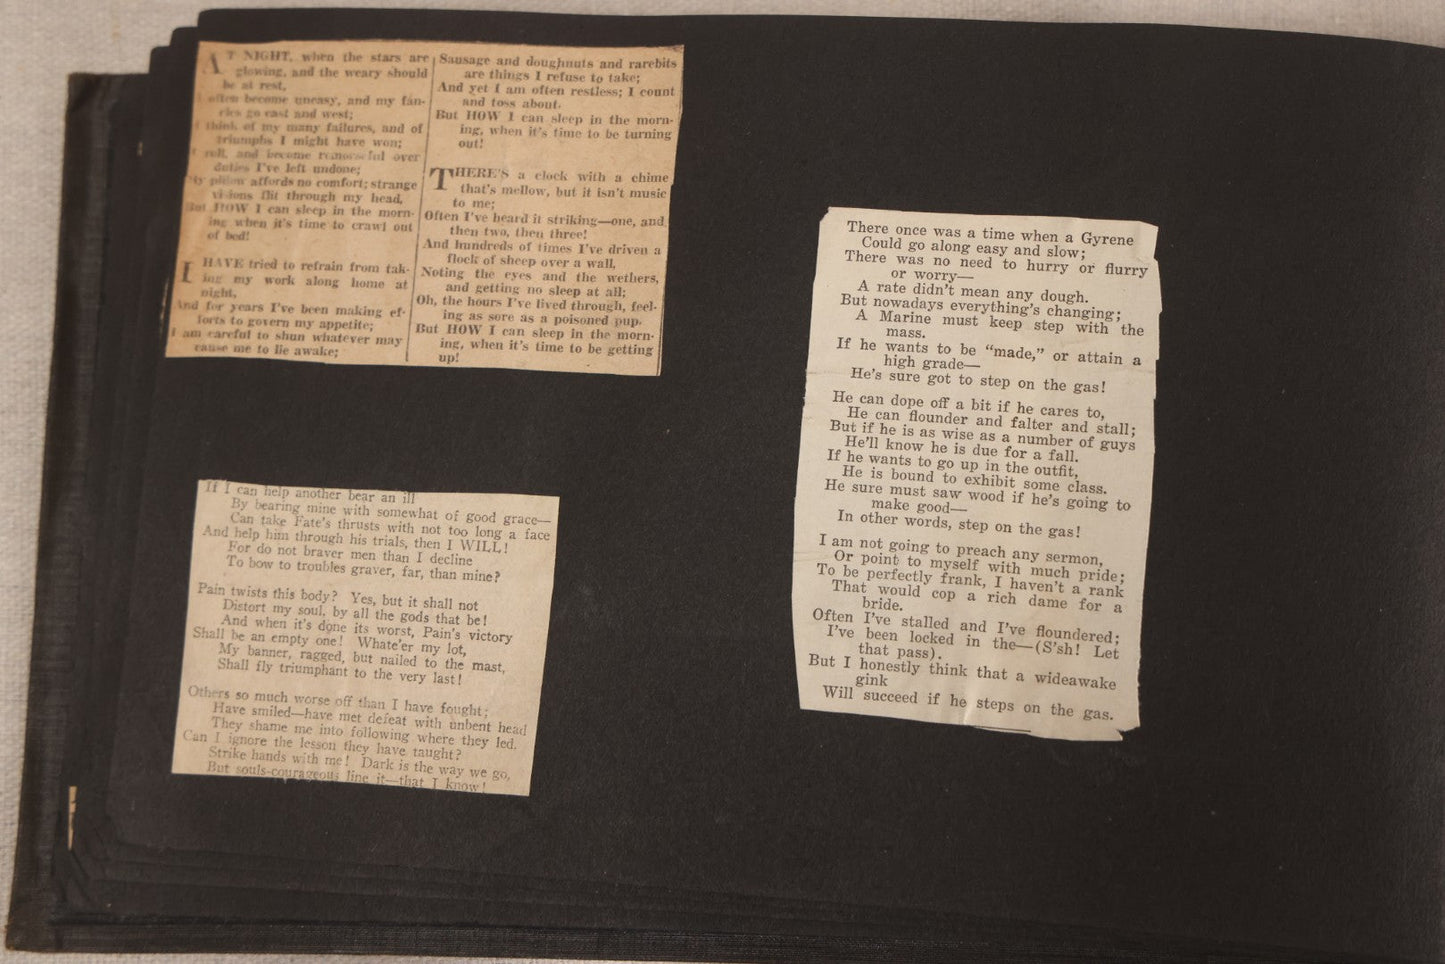 AT NIGHT, when the stars are
glowing, and the weary should
be at rest,
I often become uneasy, and my fan-
cies go east and west;
I think of my many failures, and of
triumphs I might have won;
I roll, and become remorseful over
duties I've left undone;
My pillow affords no comfort; strange
visions flit through my head,
But HOW I can sleep in the morn-
ing when it's time to crawl out
of bed!
I HAVE tried to refrain from tak-
ing my work along home at
night,
And for years I've been making ef-
forts to govern my appetite;
I am careful to shun whatever may
cause me to lie awake;
Sausage and doughnuts and rarebits
are things I refuse to take;
And yet I am often restless; I count
and toss about.
But HOW I can sleep in the morn-
ing, when it's time to be turning
out!
THERE'S a clock with a chime
that's mellow, but it isn't music
to me;
Often I've heard it striking—one, and
then two, then three!
And hundreds of times I've driven a
flock of sheep over a wall,
Noting the eyes and the wethers,
and getting no sleep at all;
Oh, the hours I've lived through, feel-
ing as sore as a poisoned pup.
But HOW I can sleep in the morn-
ing, when it's time to be getting
up!
If I can help another bear an ill
By bearing mine with somewhat of good grace—
Can take Fate's thrusts with not too long a face
And help him through his trials, then I WILL!
For do not braver men than I decline
To bow to troubles graver, far, than mine?
Pain twists this body? Yes, but it shall not
Distort my soul, by all the gods that be!
And when it's done its worst, Pain's victory
Shall be an empty one! Whate'er my lot,
My banner, ragged, but nailed to the mast,
Shall fly triumphant to the very last!
Others so much worse off than I have fought;
Have smiled—have met defeat with unbent head
They shame me into following where they led.
Can I ignore the lesson they have taught?
Strike hands with me! Dark is the way we go,
But souls-courageous line it—that I know!
There once was a time when a Gyrene
Could go along easy and slow;
There was no need to hurry or flurry
or worry—
A rate didn't mean any dough.
But nowadays everything's changing;
A Marine must keep step with the
mass.
If he wants to be "made," or attain a
high grade—
He's sure got to step on the gas!
He can dope off a bit if he cares to,
He can flounder and falter and stall;
But if he is as wise as a number of guys
He'll know he is due for a fall.
If he wants to go up in the outfit,
He is bound to exhibit some class.
He sure must saw wood if he's going to
make good—
In other words, step on the gas!
I am not going to preach any sermon,
Or point to myself with much pride;
To be perfectly frank, I haven't a rank
That would cop a rich dame for a
bride.
Often I've stalled and I've floundered;
I've been locked in the—(S'sh! Let
that pass).
But I honestly think that a wideawake
gink
Will succeed if he steps on the gas.